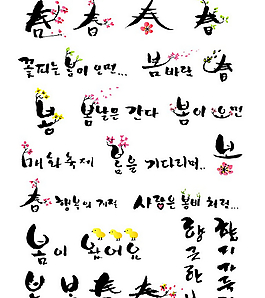 春 春 春 春
꽃피는 봄이 오면... 봄바람 春
봄 봄날은 간다 봄이 오면
매화축제 봄을 기다리며.. 봄
春 행복의 계절 사랑은 봄비처럼...
봄이 왔어요
향긋한
향기가득
봄 봄 春 春